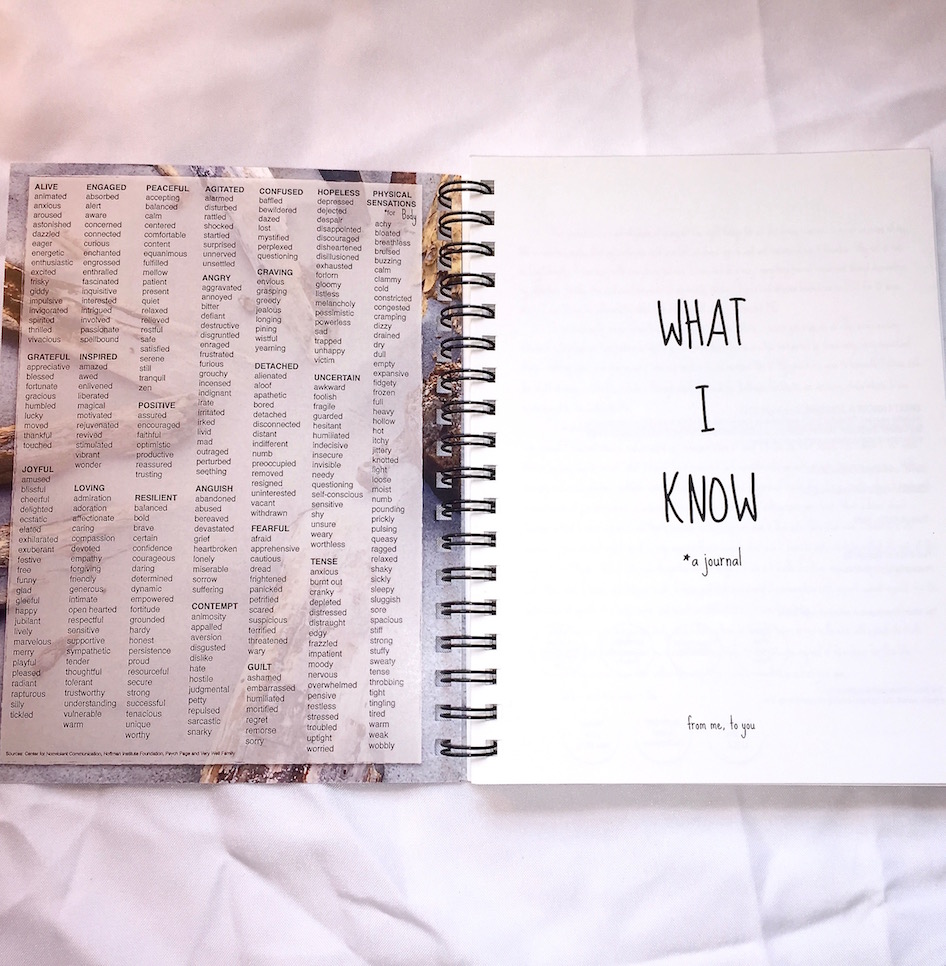 ALIVE
animated
anxious
aroused
astonished
dazzled
eager
energetic
enthusiastic
excited
frisky
giddy
impulsive
invigorated
spirited
thrilled
vivacious
GRATEFUL
appreciative
blessed
fortunate
gracious
humbled
lucky
moved
thankful
touched
JOYFUL
amused
blissful
cheerful
delighted
ecstatic
elated
exhilarated
exuberant
festive
free
funny
glad
gleeful
happy
jubilant
lively
marvelous
merry
playful
pleased
radiant
rapturous
silly
tickled
ENGAGED
absorbed
alert
aware
concerned
connected
curious
enchanted
engrossed
enthralled
fascinated
inquisitive
interested
intrigued
involved
passionate
spellbound
INSPIRED
amazed
awed
enlivened
liberated
magical
motivated
rejuvenated
revived
stimulated
vibrant
wonder
LOVING
admiration
adoration
affectionate
caring
compassion
devoted
empathy
forgiving
friendly
generous
intimate
open hearted
respectful
sensitive
supportive
sympathetic
tender
thoughtful
tolerant
trustworthy
understanding
vulnerable
warm
PEACEFUL
accepting
balanced
calm
centered
comfortable
content
equanimous
fulfilled
mellow
patient
present
quiet
relaxed
relieved
restful
safe
satisfied
serene
still
tranquil
zen
POSITIVE
assured
encouraged
faithful
optimistic
productive
reassured
trusting
RESILIENT
balanced
bold
brave
certain
confidence
courageous
daring
determined
dynamic
empowered
fortitude
grounded
hardy
honest
persistence
proud
resourceful
secure
strong
successful
tenacious
unique
worthy
AGITATED
alarmed
disturbed
rattled
shocked
startled
surprised
unnerved
unsettled
ANGRY
aggravated
annoyed
bitter
defiant
destructive
disgruntled
enraged
frustrated
furious
grouchy
incensed
indignant
irate
irritated
irked
livid
mad
outraged
perturbed
seething
ANGUISH
abandoned
abused
bereaved
devastated
grief
heartbroken
lonely
miserable
sorrow
suffering
CONTEMPT
animosity
appalled
aversion
disgusted
dislike
hate
hostile
judgmental
petty
repulsed
sarcastic
snarky
CONFUSED
baffled
bewildered
dazed
lost
mystified
perplexed
questioning
CRAVING
envious
grasping
greedy
jealous
longing
pining
wistful
yearning
DETACHED
alienated
aloof
apathetic
bored
detached
disconnected
distant
indifferent
numb
preoccupied
removed
resigned
uninterested
vacant
withdrawn
FEARFUL
afraid
apprehensive
cautious
dread
frightened
panicked
petrified
scared
suspicious
terrified
threatened
wary
GUILT
ashamed
embarrassed
humiliated
mortified
regret
remorse
sorry
HOPELESS
depressed
dejected
despair
disappointed
discouraged
disheartened
disillusioned
exhausted
forlorn
gloomy
listless
melancholy
pessimistic
powerless
sad
trapped
unhappy
victim
UNCERTAIN
awkward
foolish
fragile
guarded
hesitant
humiliated
indecisive
insecure
invisible
needy
questioning
self-conscious
sensitive
shy
unsure
weary
worthless
TENSE
anxious
burnt out
cranky
depleted
distressed
distraught
edgy
frazzled
impatient
moody
nervous
overwhelmed
pensive
restless
stressed
troubled
uptight
worried
PHYSICAL
SENSATIONS
*for Body
achy
bloated
breathless
bruised
buzzing
calm
clammy
cold
constricted
congested
cramping
dizzy
drained
dry
dull
empty
expansive
fidgety
frozen
full
heavy
hollow
hot
itchy
jittery
knotted
light
loose
moist
numb
pounding
prickly
pulsing
queasy
ragged
relaxed
shaky
sickly
sleepy
sluggish
sore
spacious
stiff
strong
stuffy
sweaty
tense
throbbing
tight
tingling
tired
warm
weak
wobbly
Sources: Center for Nonviolent Communication, Hoffman Institute Foundation, Psych Page and Very Well Family
WHAT
I
KNOW
*a journal
from me, to you